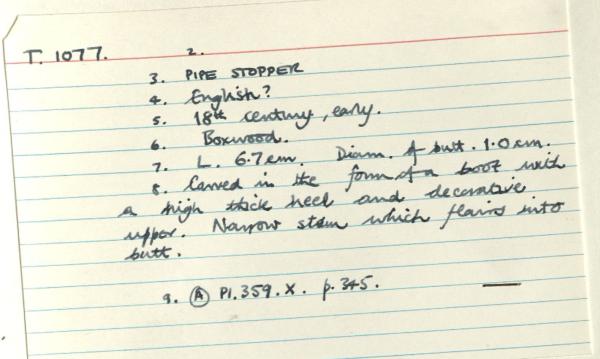 T. 1077. 2.
3. PIPE STOPPER
4. English?
5. 18th century, early.
6. Boxwood.
7. L. 6.7cm. Diam. of butt. 1.0cm.
8. Carved in the form of a boot with
a high thick heel and decorative
upper. Narrow stem which flairs into
butt.
9. (A) Pl. 359. X. p. 345.